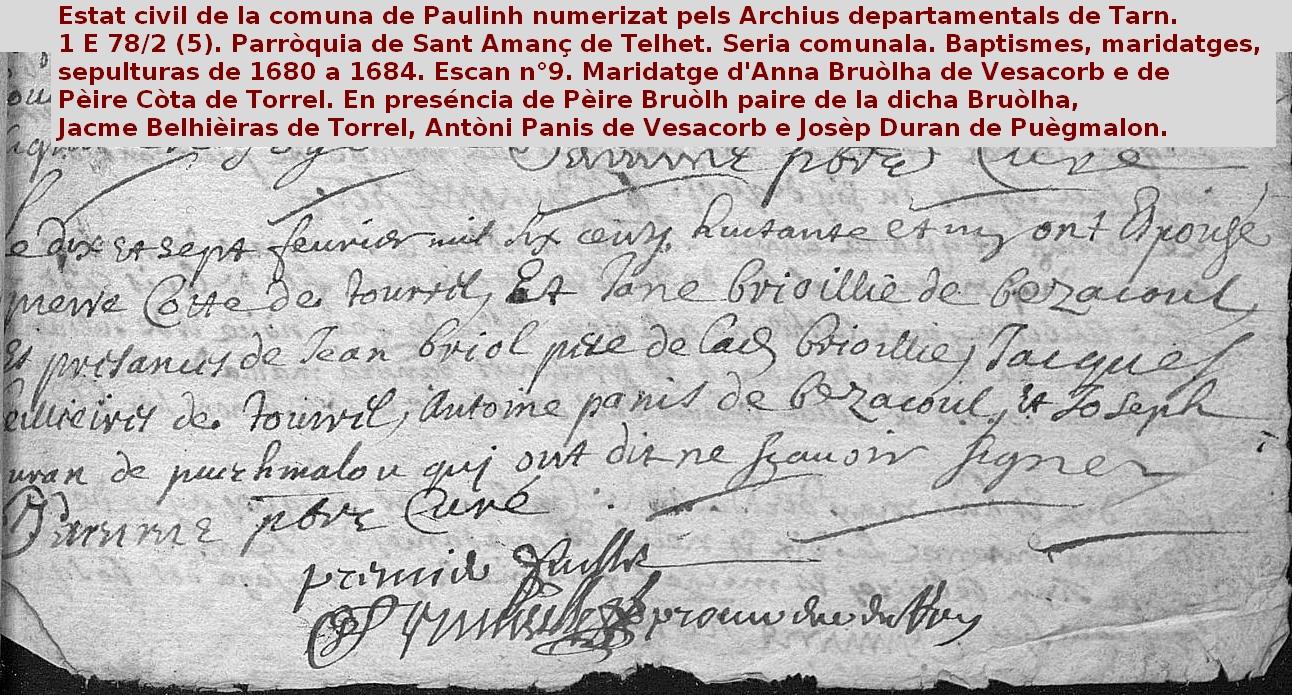 Estat civil de la comuna de Paulinh numerizat pels Archius departamentals de Tarn.
1 E 78/2 (5). Parròquia de Sant Amanç de Telhet. Seria comunala. Baptismes, maridatges,
sepulturas de 1680 a 1684. Escan n°9. Maridatge d'Anna Bruòlha de Vesacorb e de
Pèire Còta de Torrel. En preséncia de Pèire Bruòlh paire de la dicha Bruòlha,
Jacme Belhièiras de Torrel, Antòni Panis de Vesacorb e Josèp Duran de Puègmalon.
pbre Curé
le dix et sept feurier mil six cens huitante et un ont Epouse
pierre Cotte de tourril, Et Jane brioillie de bezacoul
Et presances de Jean briol pere de lad brioillie, Jacques
de tourril, Antoine panis de bezacoul, et Joseph
uran de puechmalou qui ont dit ne scauoir signer
pbre Curé